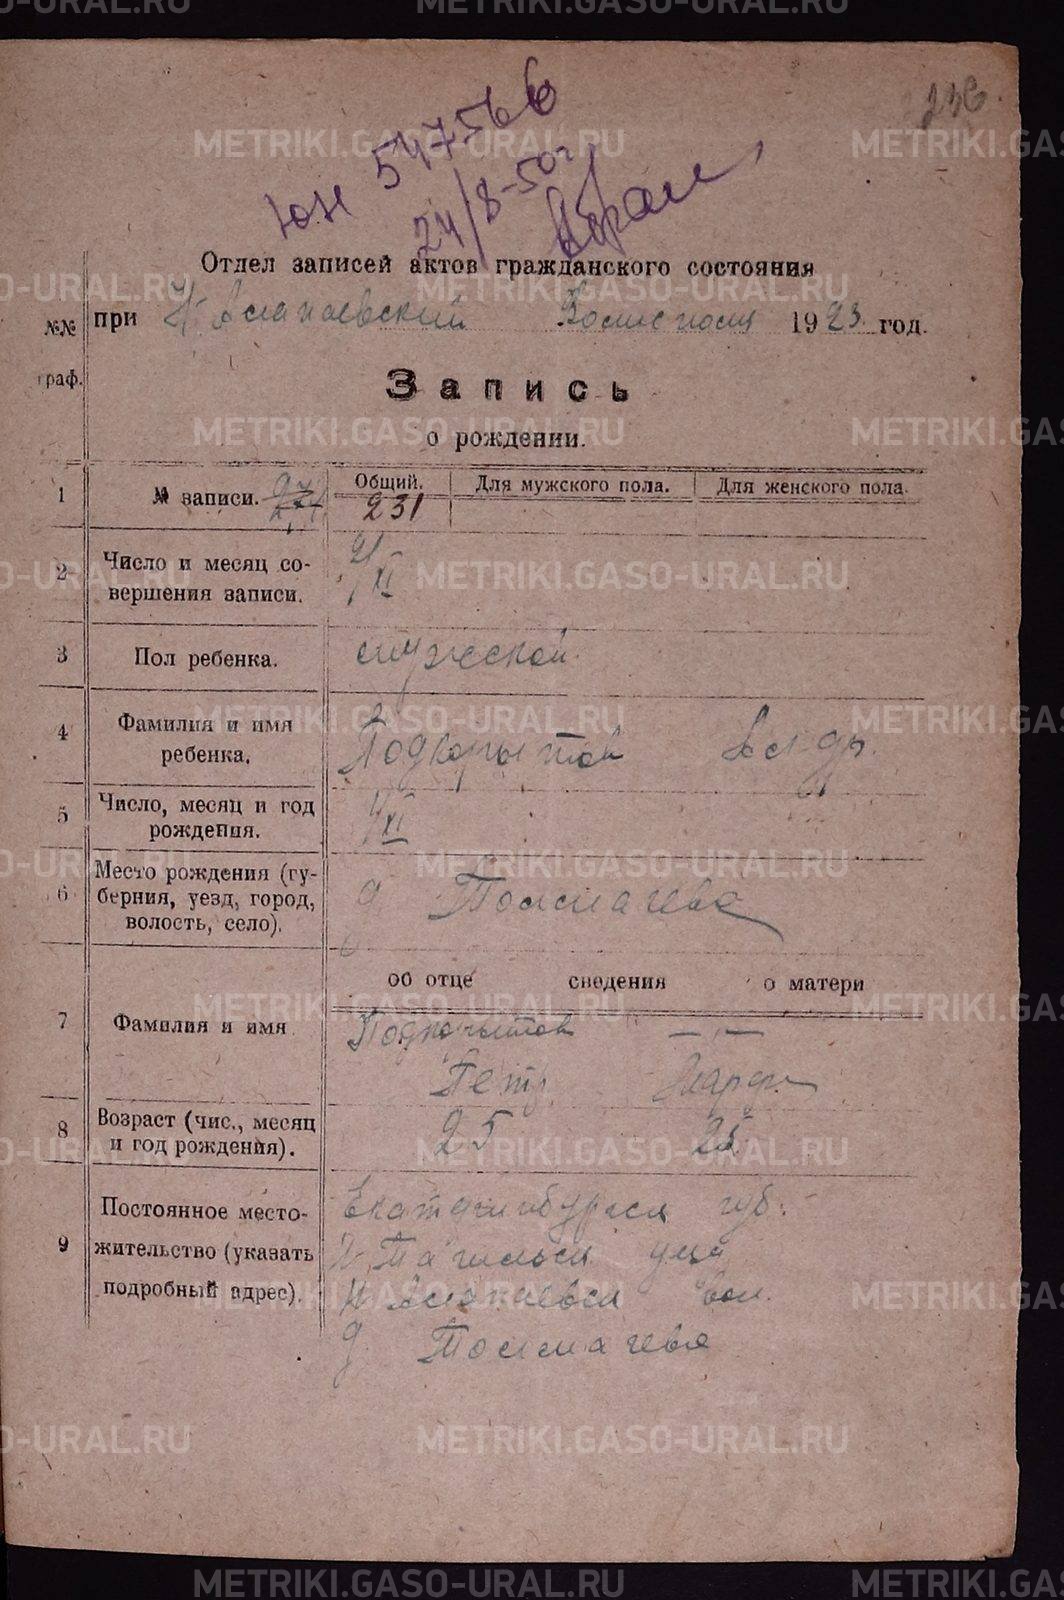 236.
ЮН 547566
24/8-50г
Отдел записей актов гражданского состояния
при Н-Алапаевский 1923 год.
№№ граф.
Запись
о рождении.
1 № записи. Общий. Для мужского пола. Для женского пола.
231
2 Число и месяц совершения записи.
21/XI
3 Пол ребенка. мужской.
4 Фамилия и имя ребенка. Подкорытов Ал-др.
5 Число, месяц и год рождения.
6 Место рождения (губерния, уезд, город, волость, село).
д Толмачева
об отце сведения о матери
7 Фамилия и имя
Подкорытов — " —
Петр Марфа
8 Возраст (чис., месяц и год рождения). 25 25
9 Постоянное местожительство (указать подробный адрес).
Екатеринбургск губ.
Н-Тагильск уезд
Н Алапаевск вол.
д Толмачева
METRIKI.GASO-URAL.RU